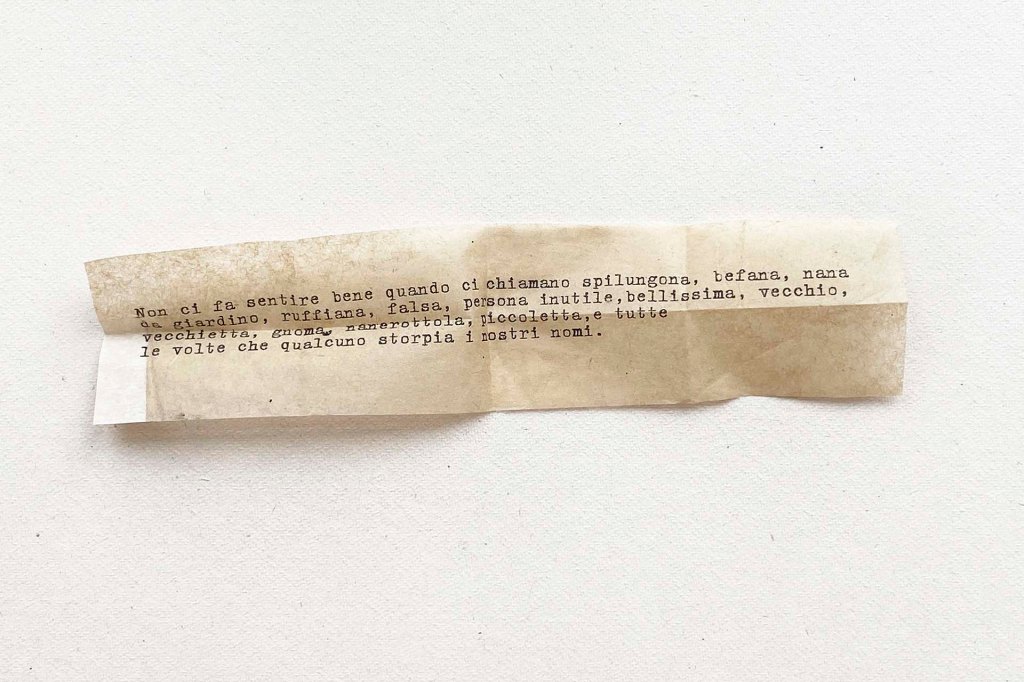 Non ci fa sentire bene quando ci chiamano spilungona, befana, nana
da giardino, ruffiana, falsa, persona inutile,bellissima, vecchio,
vecchietta, gnoma, nanerottola, piccoletta,e tutte
le volte che qualcuno storpia i nostri nomi.